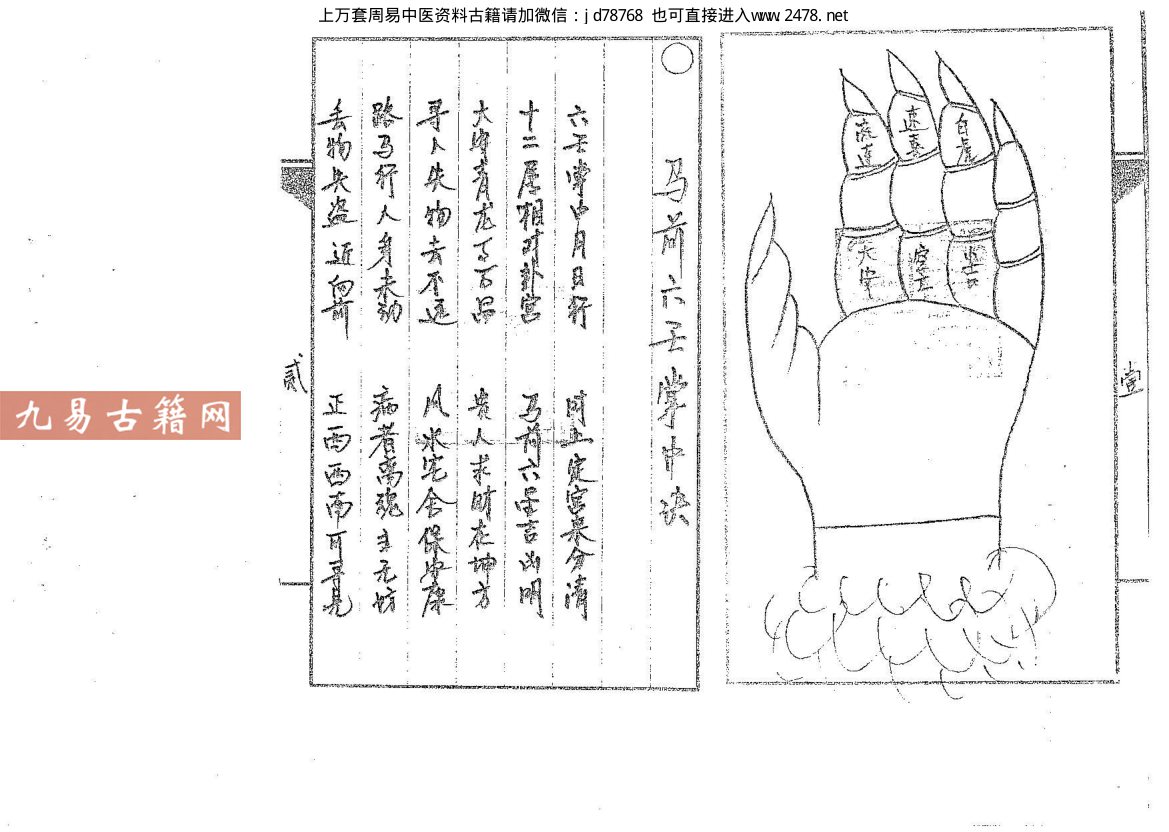 上万套周易中医资料古籍请加微信：jd78768 也可直接进入www.2478.net
流连
速喜
白虎
大安
空亡
小吉
壹
马前六壬掌中诀
六壬掌中月日行 时上定宫来分清
十二层相对卦宫 马前六星吉凶明
大安青龙了百昌 贵人求财在坤方
寻人失物去不远 风水宅舍保安康
路马行人身未动 病者离魂主无妨
丢物失盗近向前 正西西南可寻见
贰
九易古籍网